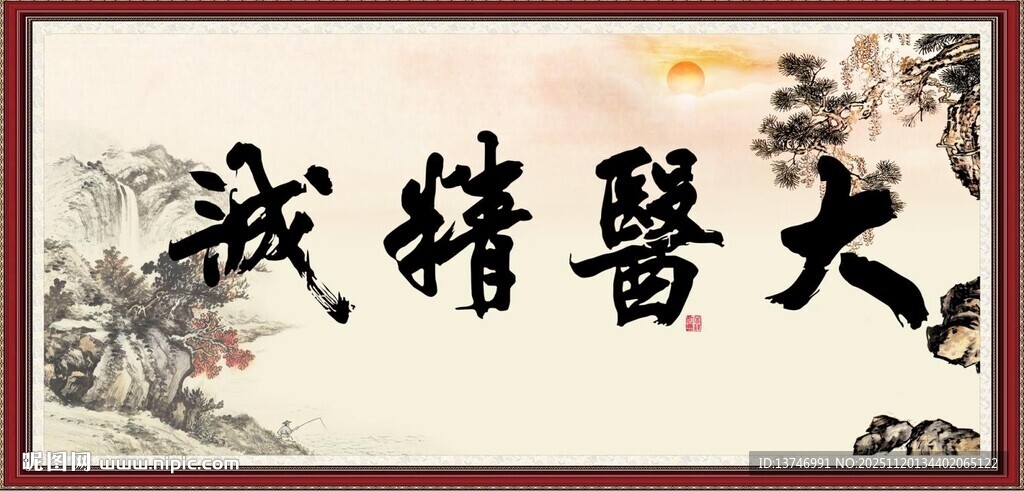 大醫精誠
昵图网 www.nipic.com
ID:13746991 NO:20251120134402065122